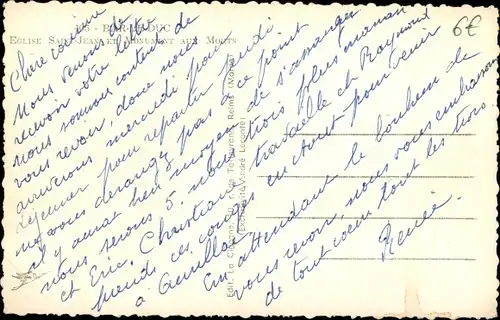 BAR-LE-DUC
EGLISE SAINT-JEAN ET MONUMENT AUX MORTS
6€
Chère cousine
Nous venons de
recevoir votre lettre
nous sommes contents de
vous revoir, donc nous
arriverons mercredi pour
déjeuner pour repartir jeudi
ne vous dérangez pas à ce point
il y aurait bien moyen de s'arranger
nous serons 5. nous trois plus maman
et Eric. Christian travaille ch Raymond
prends ses congés en Août pour venir
à
En attendant le bonheur de
vous revoir, nous vous embrassons
de tout coeur tout les trois
Renée
Reims (Marne)